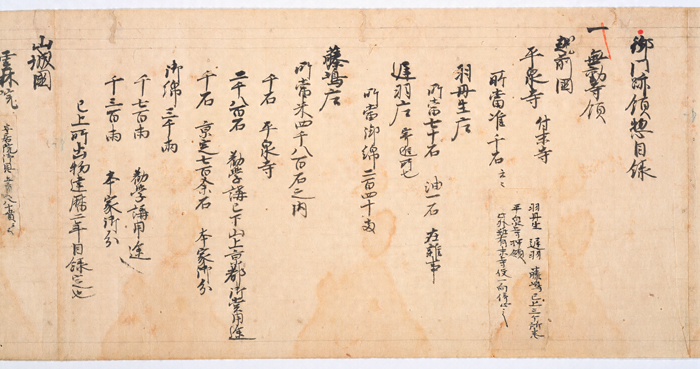 御門跡領惣目録
一 無動寺領
越前国
平泉寺 付末寺
所当准千石云々
羽丹生 遅羽 藤嶋已上三ケ所末
平泉寺
羽丹生庄
所当七十石 油一石 在雑事
遅羽庄
所当御綿二百四十両
藤嶋庄
所当米四千八百石之内
千石 平泉寺
二千八百石 勧学講已下山上京都御営用途
千石 京定七百余石 本家御分
御綿三千両
千七百両 勧学講用途
千三百両 本家御分
已上所出物建暦二年目録定也
山城国
雲林院